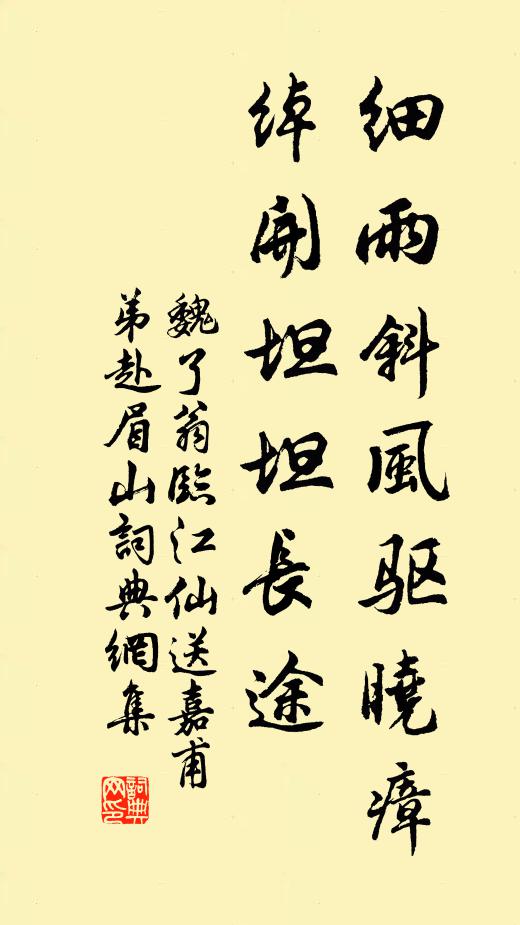 细雨斜風驱曉瘴
綽開坦坦長途
魏了翁臨江仙送嘉甫
弟赴眉山詞典網集
詞典
网印